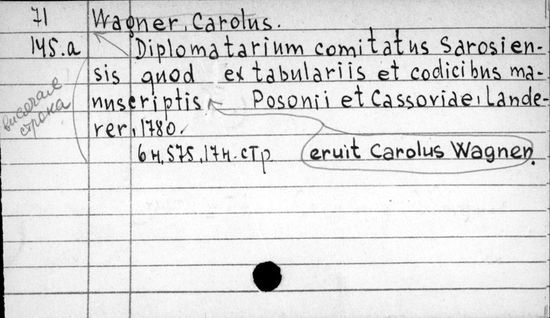 71 Wagner, Carolus.
145.a Diplomatarium comitatus Sarosien-
sis quod ex tabulariis et codicibus ma-
nuscriptis Posonii et Cassoviae, Lande-
rer, 1780.
6 н, 575, 17 н. стр.
eruit Carolus Wagner.
висячая
строка